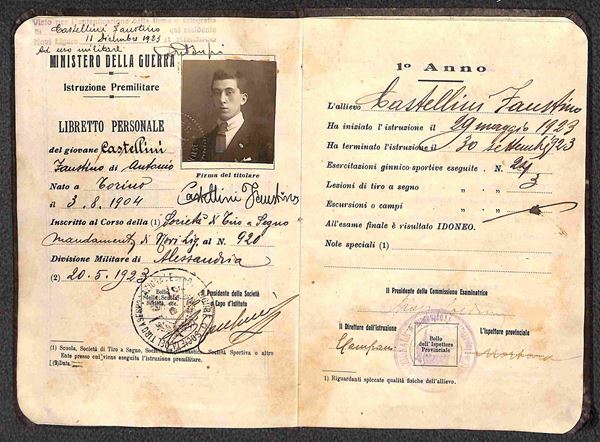 Visto per l'autenticazione della firma e fotografia
Castellini Faustino
11 Dicembre 1923
Ad uso militare
MINISTERO DELLA GUERRA
Istruzione Premilitare
LIBRETTO PERSONALE
del giovane Castellini
Faustino di Antonio
Nato a Torino
il 3.8.1904
Firma del titolare
Castellini Faustino
Inscritto al Corso della (1) Società di Tiro a Segno
mandament. di Novi Lig. al N. 920
Divisione Militare di Alessandria
(2) 20.5.1923
Bollo
della Scuola
Società, ecc.
Il Presidente della Società
o Capo d'Istituto
(1) Scuola, Società di Tiro a Segno, Società Sportiva o altro
Ente presso cui viene eseguita l'istruzione premilitare.
(2) Data
1º Anno
L'allievo Castellini Faustino
Ha iniziato l'istruzione il 29 maggio 1923
Ha terminato l'istruzione il 30 settembre 1923
Esercitazioni ginnico-sportive eseguite N. 24
Lezioni di tiro a segno " " 3
Escursioni o campi " "
All'esame finale è risultato IDONEO.
Note speciali (1)
Il Presidente della Commissione Esaminatrice
Il Direttore dell'istruzione
L'Ispettore provinciale
Bollo
dell'Ispettore
Provinciale
1) Riguardanti spiccate qualità fisiche dell'allievo.